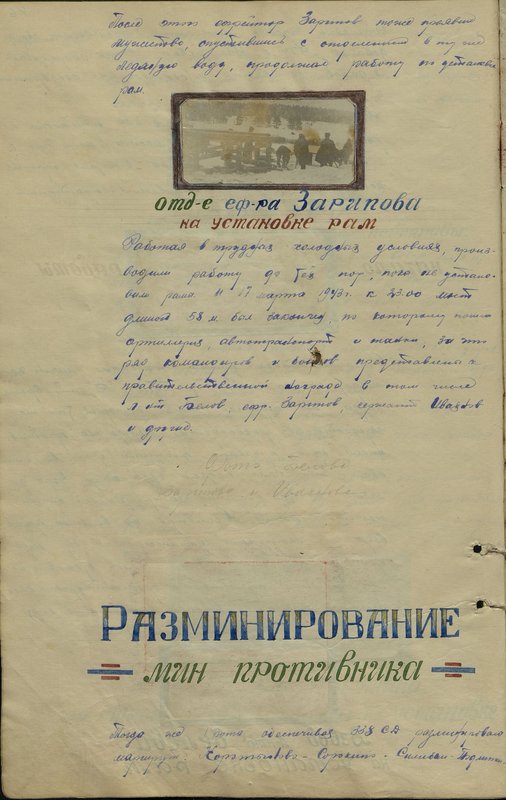 После этого ефрейтор Зарипов тоже проявил
мужество, опустившись с отделением в ту же
ледяную воду, продолжал работу по установке
рам.
отд-е еф-ра Зарипова
на установке рам
Работая в трудных холодных условиях, произ-
водили работу до тех пор пока не устано-
вили рамы и 17 марта 1943г. к 23.00 мост
длиной 58 м. был закончен, по которому пошла
артиллерия, автотранспорт и танки, за что
ряд командиров и бойцов представлена к
правительственной награде в том числе
л-нт Белов, ефр. Зарипов, сержант Иванов
и другие.
Фото Белова
Зарипова и Иванова
Разминирование
мин противника
Тогда же рота обеспечивая 338 СД разминировала
маршрут: